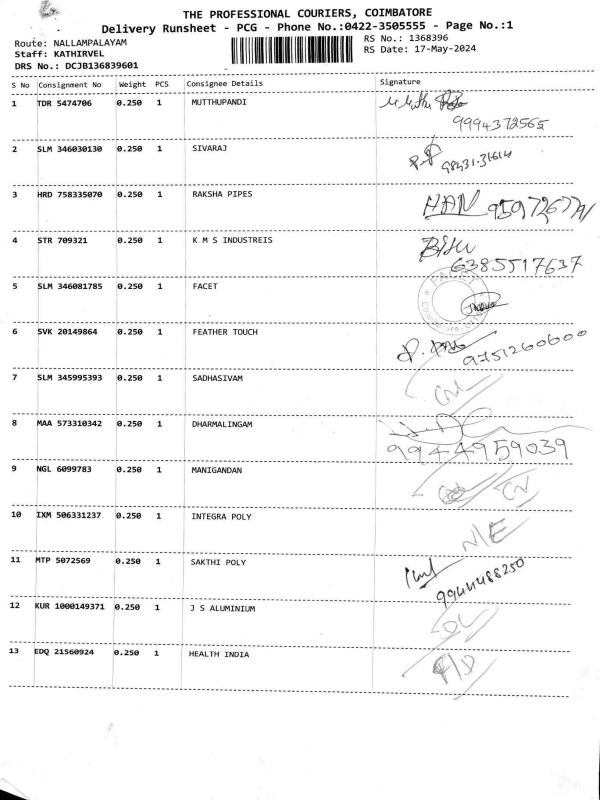 THE PROFESSIONAL COURIERS, COIMBATORE
Delivery Runsheet - PCG - Phone No.:0422-3505555 - Page No.:1
Route: NALLAMPALAYAM
RS No.: 1368396
Staff: KATHIRVEL
RS Date: 17-May-2024
DRS No.: DCJB136839601
S No Consignment No Weight PCS Consignee Details Signature
1 TDR 5474706 0.250 1 MUTTHUPANDI
9994372565
2 SLM 346030130 0.250 1 SIVARAJ
98431.31614
3 HRD 758335070 0.250 1 RAKSHA PIPES HAN
4 STR 709321 0.250 1 K M S INDUSTREIS
6385517637
5 SLM 346081785 0.250 1 FACET
FACET
6 SVK 20149864 0.250 1 FEATHER TOUCH
9751260600
7 SLM 345995393 0.250 1 SADHASIVAM
8 MAA 573310342 0.250 1 DHARMALINGAM
9944959039
9 NGL 6099783 0.250 1 MANIGANDAN
10 IXM 506331237 0.250 1 INTEGRA POLY
11 MTP 5072569 0.250 1 SAKTHI POLY
9944488250
12 KUR 1000149371 0.250 1 J S ALUMINIUM
13 EDQ 21560924 0.250 1 HEALTH INDIA